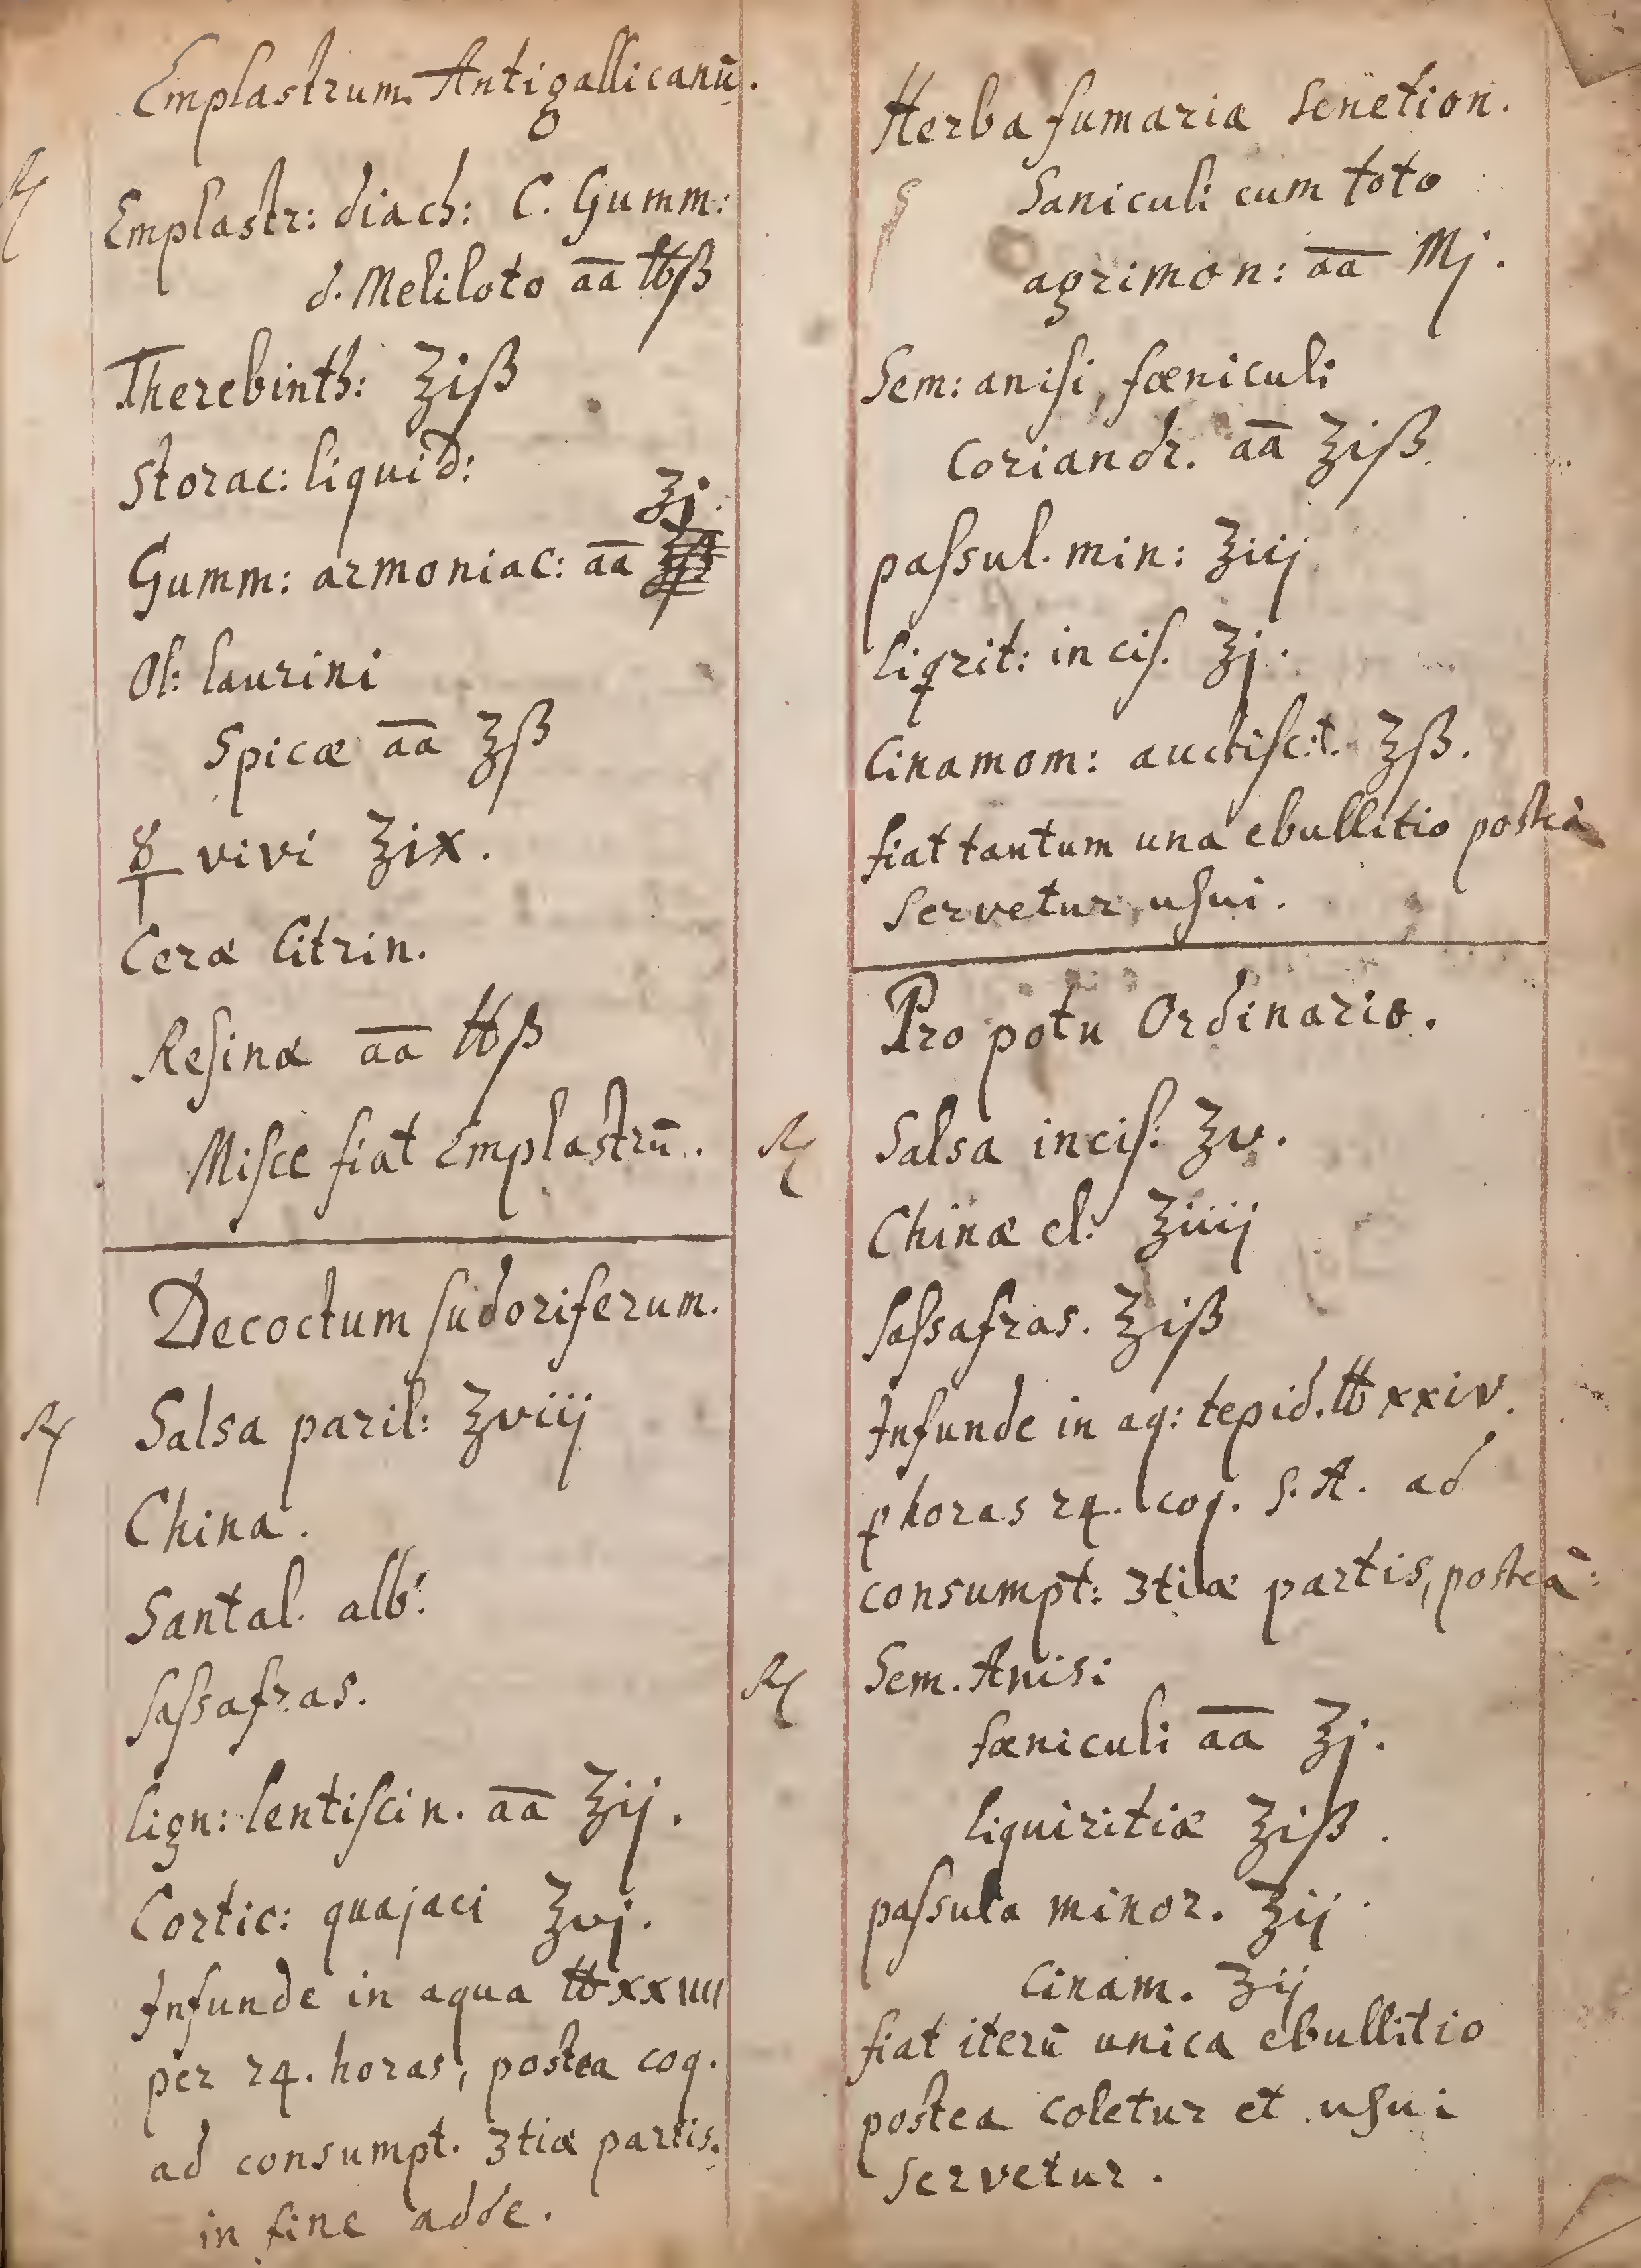 Emplastrum Antigallicanū.
℞
Emplastr: diach: C. Gumm:
d. Meliloto āā ℔ß
Therebinth: ℥iß
Storac: liquid:
℥j.
Gumm: armoniac: āā
Ol: laurini
Spicæ āā ℥ß
☿ vivi ℥ix.
Ceræ Citrin.
Resinæ āā ℔ß
Misce fiat Emplastrū.
Decoctum sudoriferum.
℞ Salsa paril: ℥viij
China.
Santal. alb:
sassafras.
lign: lentiscin. āā ℥ij.
Cortic: quajaci ℥vj.
Infunde in aqua ℔xxiiii
per 24. horas, postea coq.
ad consumpt. 3tiæ partis.
in fine adde.
Herba fumariæ Senetion.
Saniculi cum toto
agrimon: āā Mj.
Sem: anisi, fœniculi
Coriandr. āā ℥iß.
passul. min: ℥iij
liqrit: incis. ℥j.
Cinamom: ℥ß.
fiat tantum una ebullitio posteà
servetur usui.
Pro potu Ordinario.
℞ Salsa incis: ℥v.
Chinæ el: ℥iiij
sassafras. ℥iß
Infunde in aq: tepid. ℔ xxiv.
ꝑ horas 24. coq. S. A. ad
consumpt: 3tiæ partis, posteà:
℞ Sem. Anisi
fœniculi āā ℥j.
liquiritiæ ℥iß.
passula minor. ℥ij.
Cinam. ℥ij
fiat iterū unica ebullitio
postea coletur et usui
servetur.